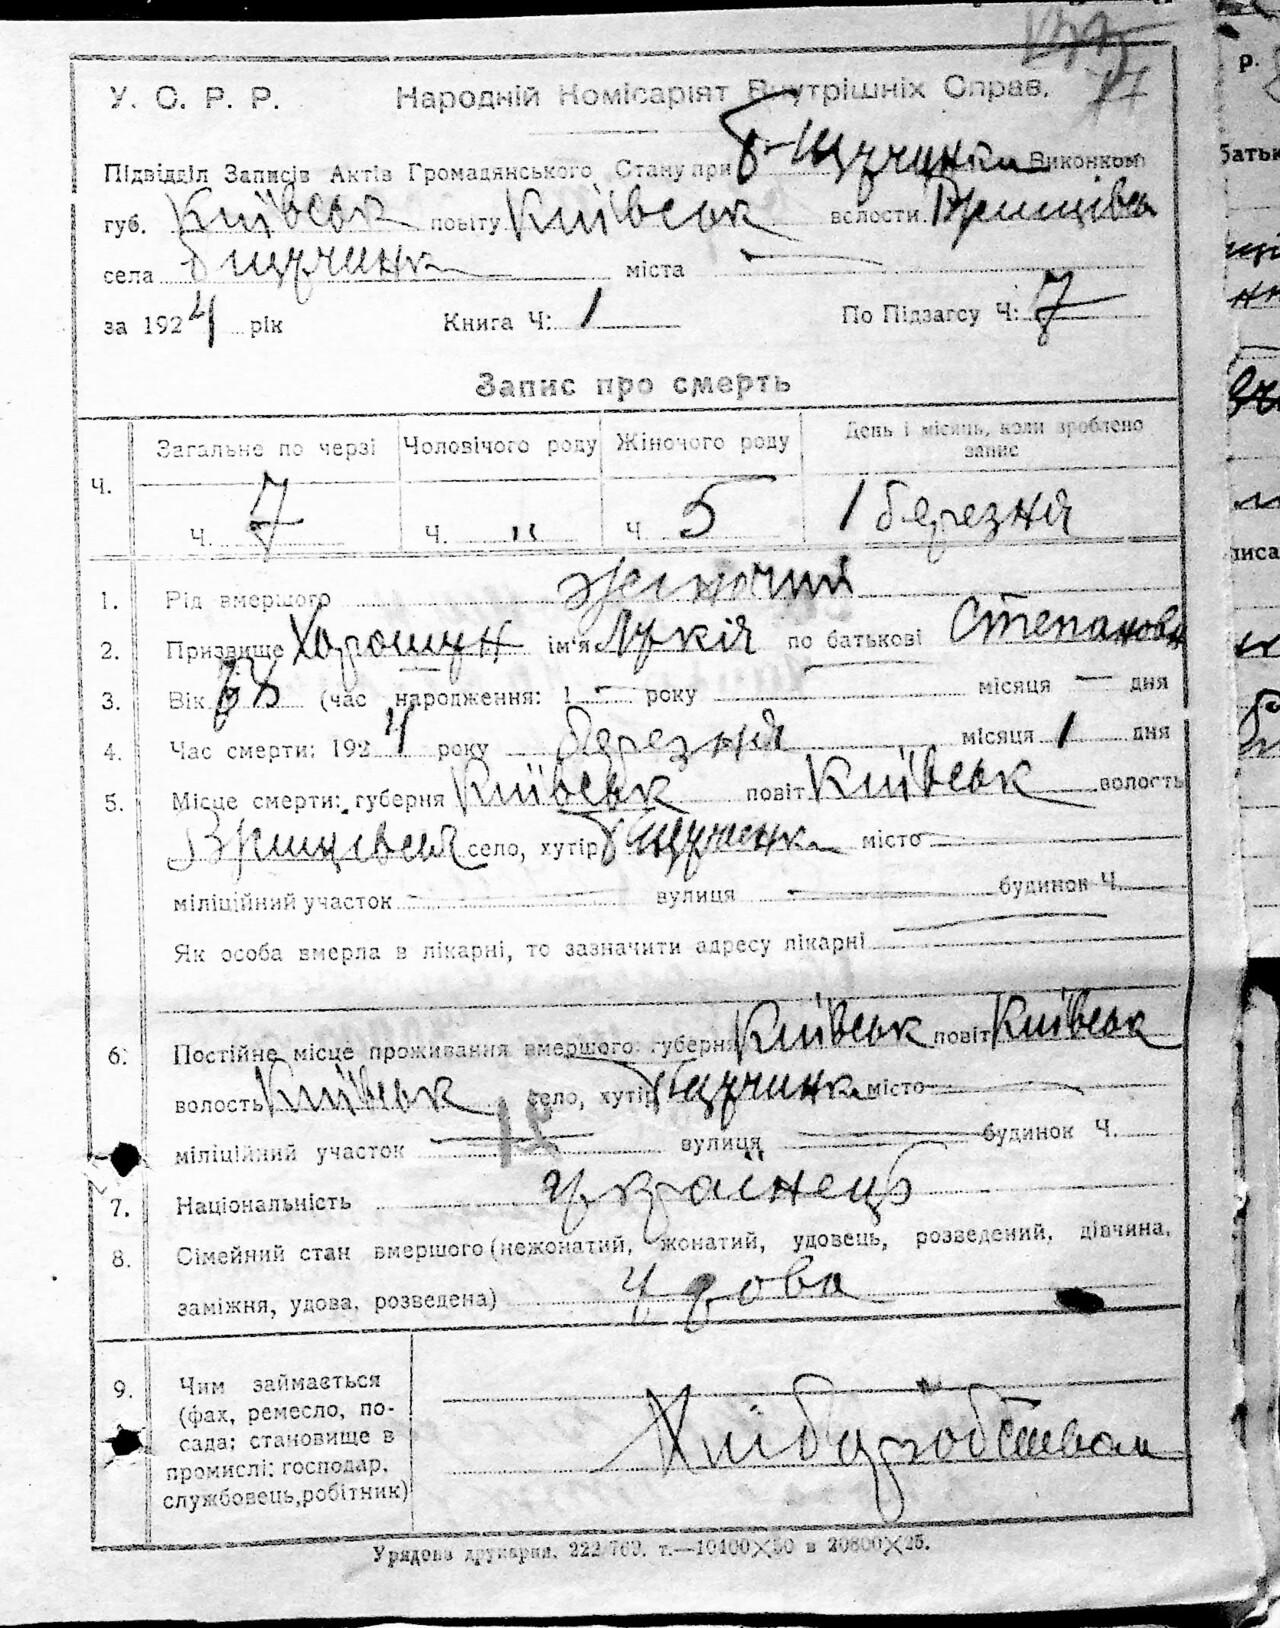 У. С. Р. Р. Народній Комісаріят Внутрішніх Справ.
Підвідділ Записів Актів Громадянського Стану при Виконкомі
губ. Київськ повіту Київськ волости
села міста —
за 1924 рік Книга Ч: 1 По Підзагсу Ч: 7
Запис про смерть
Ч. Загальне по черзі Чоловічого роду Жіночого роду День і місяць, коли зроблено запис
Ч. 7 Ч. „ Ч. 5 1 березня
1. Рід вмершого жіночий
2. Призвище Хорошун ім'я Лукія по батькові Степановн
3. Вік (час народження: 1 — року місяця — дня
4. Час смерти: 1924 року березня місяця 1 дня
5. Місце смерти: губерня Київськ повіт Київськ волость
село, хутір місто —
міліційний участок — вулиця — будинок Ч. —
Як особа вмерла в лікарні, то зазначити адресу лікарні
6. Постійне місце проживання вмершого: губерня Київськ повіт Київськ
волость Київськ село, хутір місто —
міліційний участок — вулиця — будинок Ч.
7. Національність українець
8. Сімейний стан вмершого (нежонатий, жонатий, удовець, розведений, дівчина,
заміжня, удова, розведена) удова
9. Чим займається
(фах, ремесло, по-
сада; становище в
промислі: господар,
службовець, робітник)
Хліборобством
Урядова друкарня. 222/763. т.—10400×50 в 20800×25.